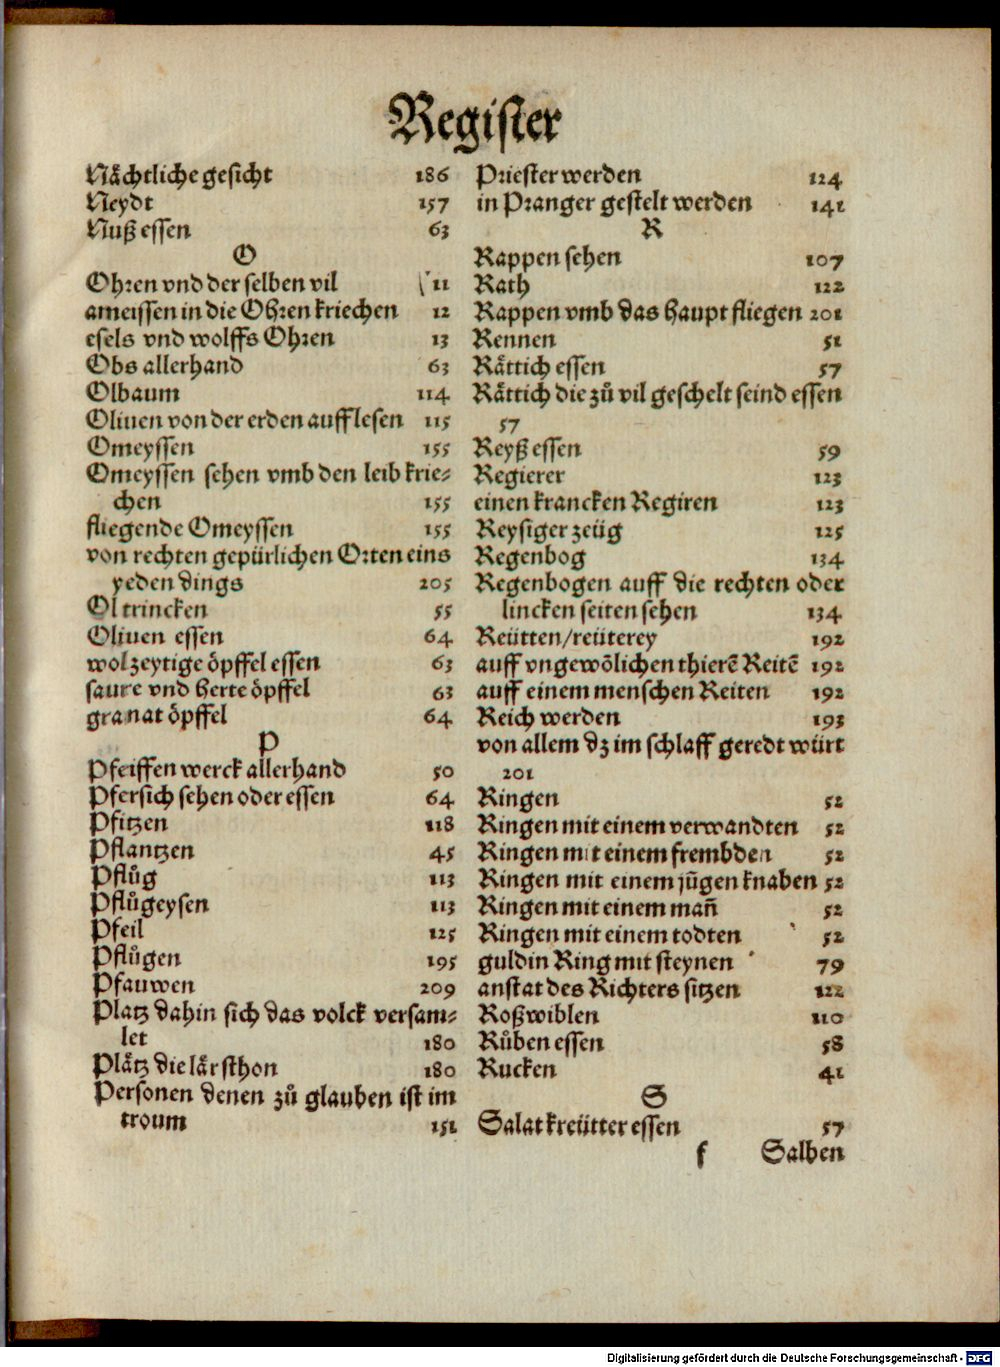 Register
Nächtliche gesicht 186
Neydt 157
Nuß essen 63
O
Ohren vnd der selben vil 11
ameissen in die Ohren kriechen 12
esels vnd wolffs Ohren 13
Obs allerhand 63
Olbaum 114
Oliuen von der erden aufflesen 115
Omeyssen 155
Omeyssen sehen vmb den leib krie⸗
chen 155
fliegende Omeyssen 155
von rechten gepürlichen Orten eins
yeden dings 205
Ol trincken 55
Oliuen essen 64
wolzeytige öpffel essen 63
saure vnd herte öpffel 63
granat öpffel 64
P
Pfeiffen werck allerhand 50
Pfersich sehen oder essen 64
Pfitzen 118
Pflantzen 45
Pflůg 113
Pflůgeysen 113
Pfeil 125
Pflůgen 195
Pfauwen 209
Platz dahin sich das volck versam⸗
let 180
Plätz die lär sthon 180
Personen denen zů glauben ist im
troum 151
Priester werden 124
in Pranger gestelt werden 141
R
Rappen sehen 107
Rath 122
Rappen vmb das haupt fliegen 201
Rennen 51
Rättich essen 57
Rättich die zů vil geschelt seind essen
57
Reyß essen 59
Regierer 123
einen krancken Regiren 123
Reysiger zeüg 125
Regenbog 134
Regenbogen auff die rechten oder
lincken seiten sehen 134
Reütten/reüterey 192
auff vngewõlichen thierẽ Reitẽ 192
auff einem menschen Reiten 192
Reich werden 193
von allem dz im schlaff geredt würt
201
Ringen 52
Ringen mit einem verwandten 52
Ringen mit einem frembden 52
Ringen mit einem jũgen knaben 52
Ringen mit einem mañ 52
Ringen mit einem todten 52
guldin Ring mit steynen 79
anstat des Richters sitzen 122
Roßwiblen 110
Růben essen 58
Rucken 41
S
Salat kreütter essen 57
f Salben
Digitalisierung gefördert durch die Deutsche Forschungsgemeinschaft - DFG